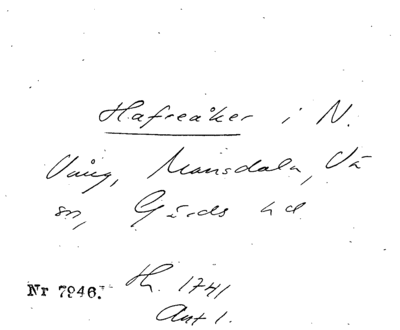 Hafreåker i N.
Vång, Mansdala, Vä
sn, Gärds hd
Nr 7946. Th. 1741
Akt 1.